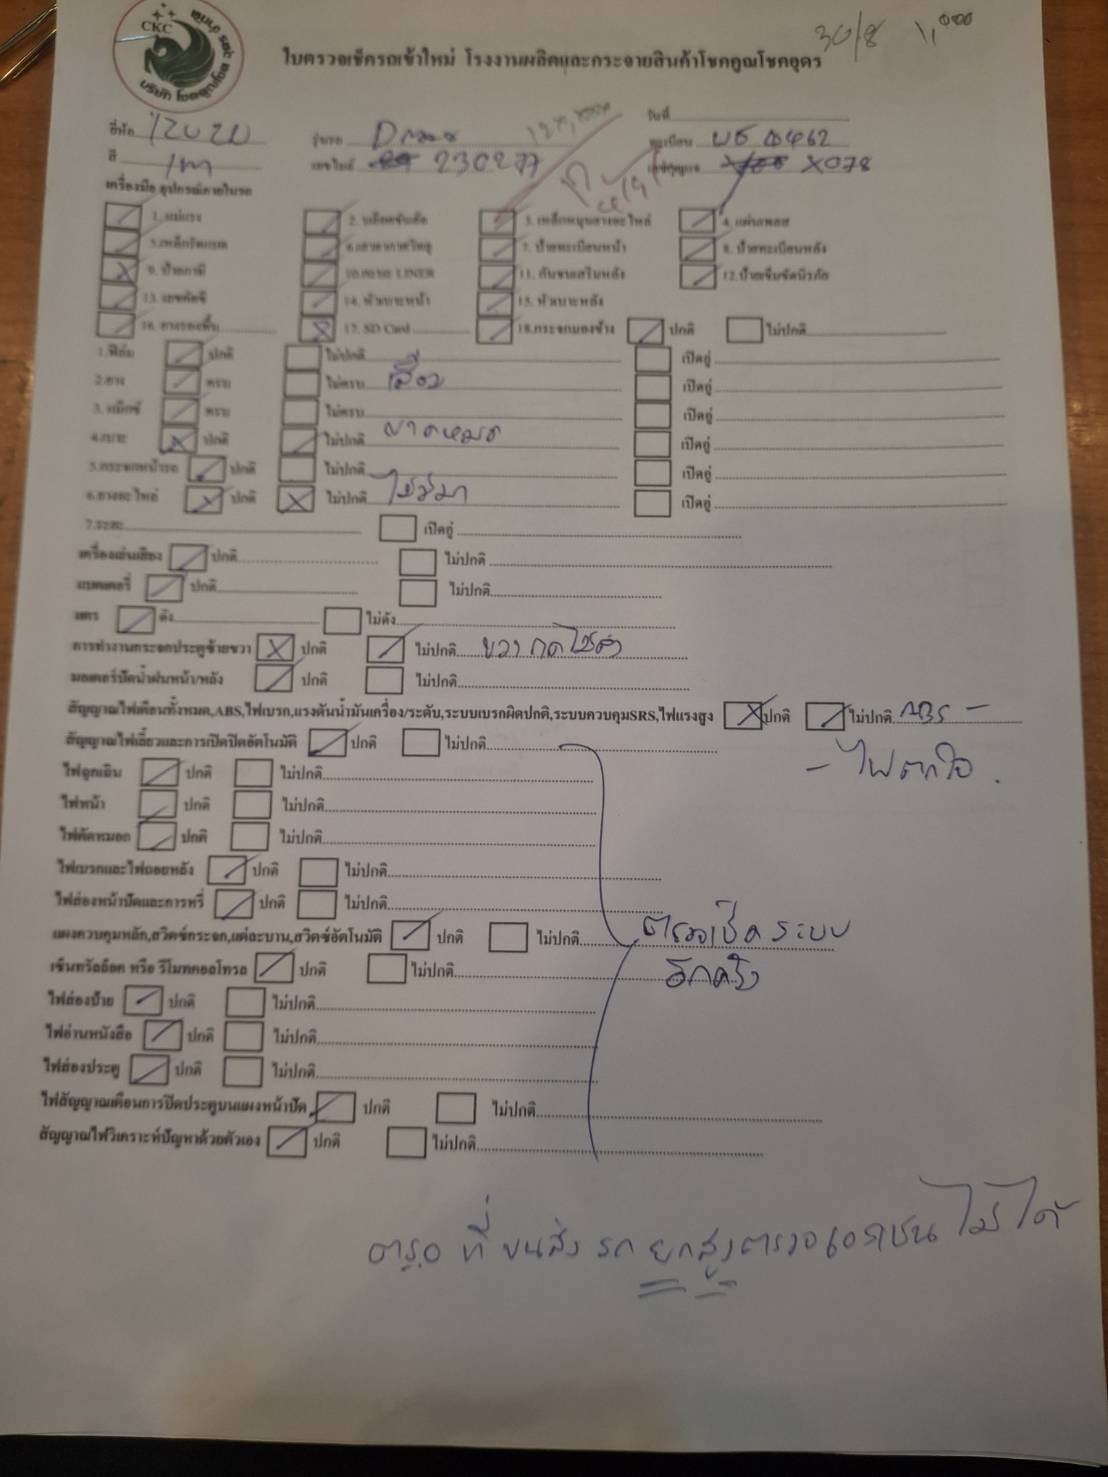 CKC
30/8
ใบตรวจเช็ครถเข้าใหม่ โรงงานผลิตและกระจายสินค้าโชคคูณโชคอุดร
วันที่
ยี่ห้อ ISUZU รุ่นรถ Dmax ทะเบียน
สี เทา เลขไมล์ 230277 X078
เครื่องมือ อุปกรณ์ภายในรถ
1. แม่แรง 2. บล็อคขันล้อ 3. เหล็กหมุนยางอะไหล่ 4. แผ่นเพลส
6. เสาอากาศวิทยุ 7. ป้ายทะเบียนหน้า 8. ป้ายทะเบียนหลัง
9. ป้ายภาษี 10. LINER 11. กันชนเสริมหลัง 12. ป้ายเข็มขัดนิรภัย
13. 14. หัวเบาะหน้า 15. หัวเบาะหลัง
16. ยางรองพื้น 17. SD Card 18. กระจกมองข้าง ปกติ ไม่ปกติ
1. ฟิล์ม ปกติ ไม่ปกติ เปิดคู่
2. ยาง ครบ ไม่ครบ เปิดคู่
3. แม็กซ์ ครบ ไม่ครบ เปิดคู่
4. เบาะ ปกติ ไม่ปกติ ขาดหมด เปิดคู่
5. กระจกหน้ารถ ปกติ ไม่ปกติ เปิดคู่
6. ยางอะไหล่ ปกติ ไม่ปกติ ไม่มีมา เปิดคู่
7. เปิดคู่
เครื่องเล่นเสียง ปกติ ไม่ปกติ
แบตเตอรี่ ปกติ ไม่ปกติ
แตร ดัง ไม่ดัง
การทำงานกระจกประตูซ้ายขวา ปกติ ไม่ปกติ ขวา กดไม่ลง
มอเตอร์ปัดน้ำฝนหน้า/หลัง ปกติ ไม่ปกติ
สัญญาณไฟเตือนทั้งหมด,ABS,ไฟเบรก,แรงดันน้ำมันเครื่อง/ระดับ,ระบบเบรกผิดปกติ,ระบบควบคุมSRS,ไฟแรงสูง ปกติ ไม่ปกติ ABS -
สัญญาณไฟเลี้ยวและการเปิดปิดอัตโนมัติ ปกติ ไม่ปกติ
- ไฟตกใจ
ไฟฉุกเฉิน ปกติ ไม่ปกติ
ไฟหน้า ปกติ ไม่ปกติ
ไฟตัดหมอก ปกติ ไม่ปกติ
ไฟเบรกและไฟถอยหลัง ปกติ ไม่ปกติ
ไฟส่องหน้าปัดและการหรี่ ปกติ ไม่ปกติ
แผงควบคุมหลัก,สวิตช์กระจก,แต่ละบาน,สวิตช์อัตโนมัติ ปกติ ไม่ปกติ ตรวจเช็คระบบ
เซ็นทรัลล็อค หรือ รีโมทคอลโทรล ปกติ ไม่ปกติ อีกครั้ง
ไฟส่องป้าย ปกติ ไม่ปกติ
ไฟอ่านหนังสือ ปกติ ไม่ปกติ
ไฟส่องประตู ปกติ ไม่ปกติ
ไฟสัญญาณเตือนการปิดประตูบนแผงหน้าปัด ปกติ ไม่ปกติ
สัญญาณไฟวิเคราะห์ปัญหาด้วยตัวเอง ปกติ ไม่ปกติ
ตรอ ที่ขนส่ง รถยกสูงตรวจเอกชนไม่ได้